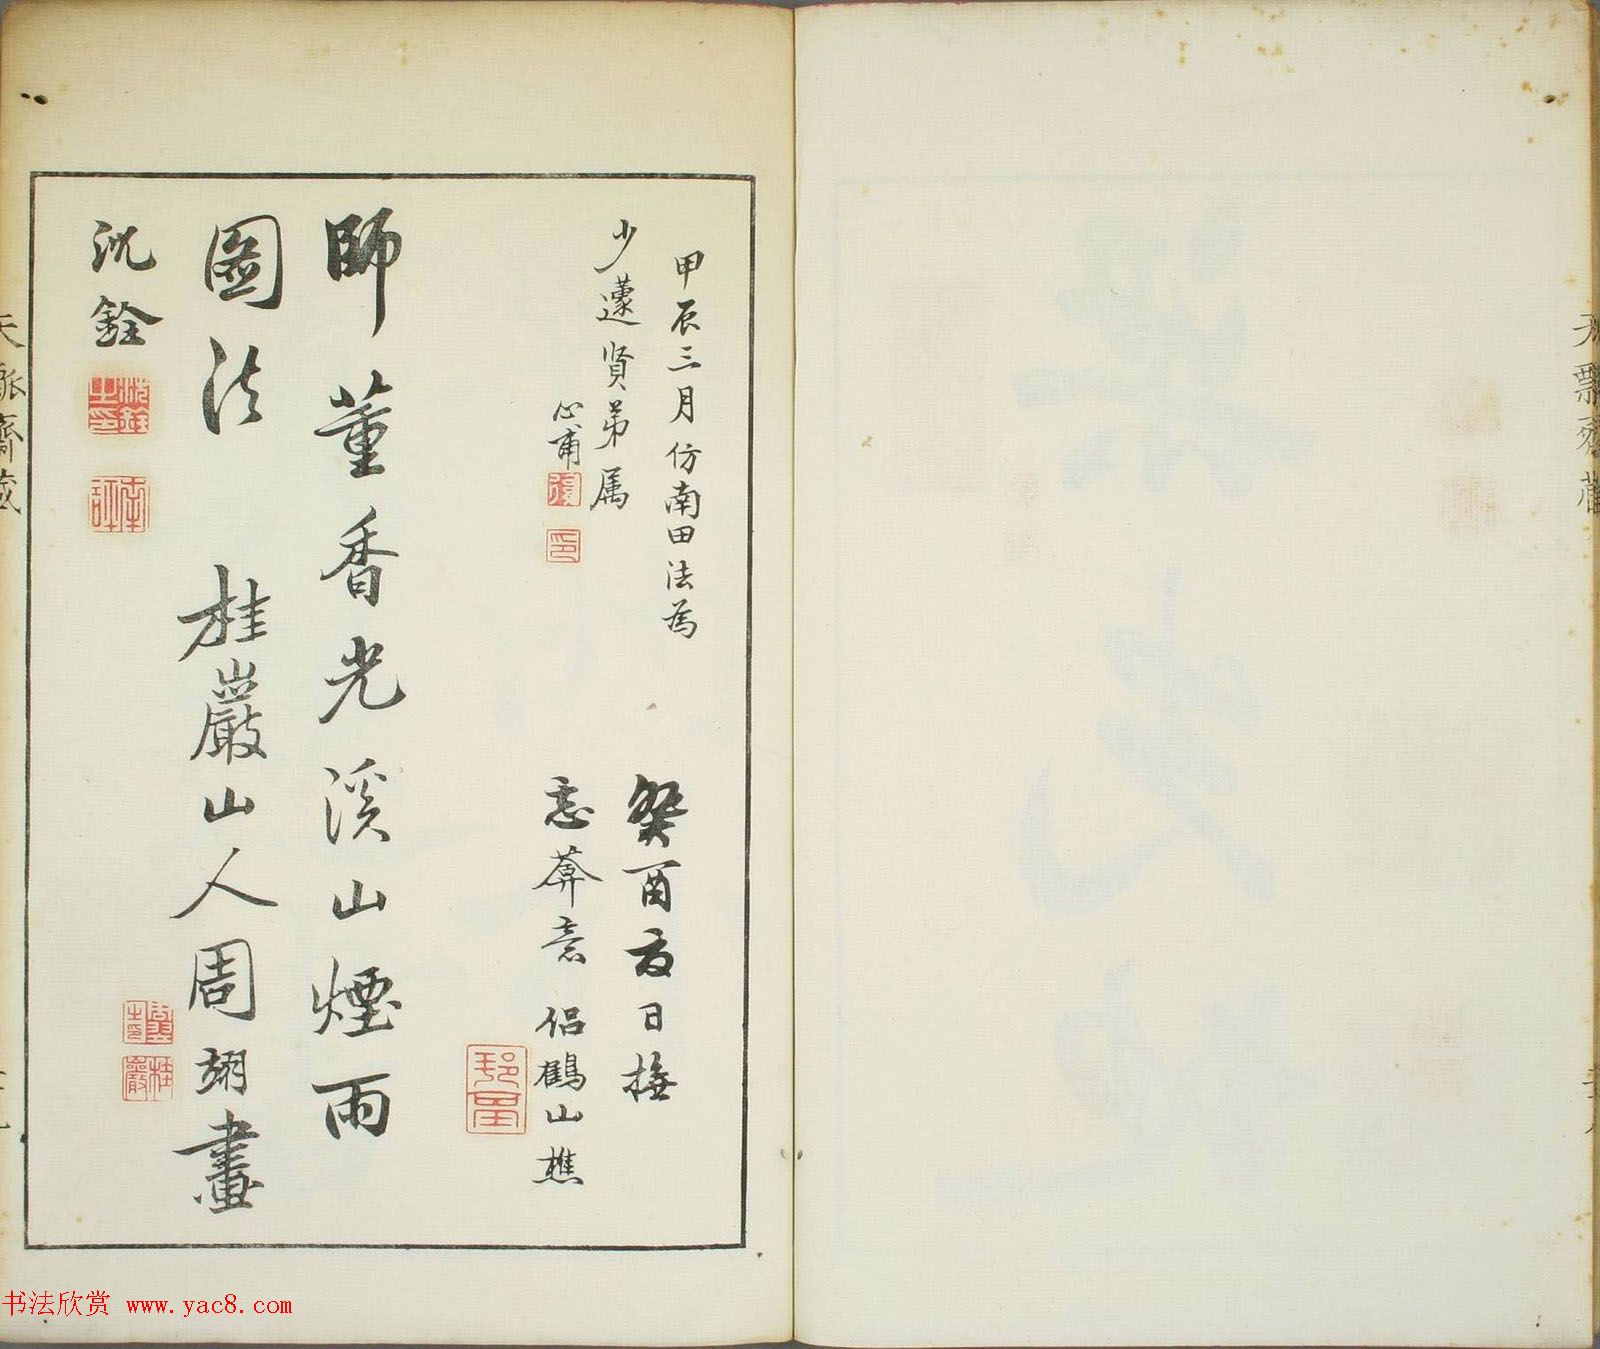 甲辰三月仿南田法為
少蘧賢弟属
心甫
癸酉夏日撫
忘葊意 侣鶴山樵
師董香光溪山煙雨
圖法 桂巖山人周翊畫
沈銓
書法欣赏 www.yac8.com